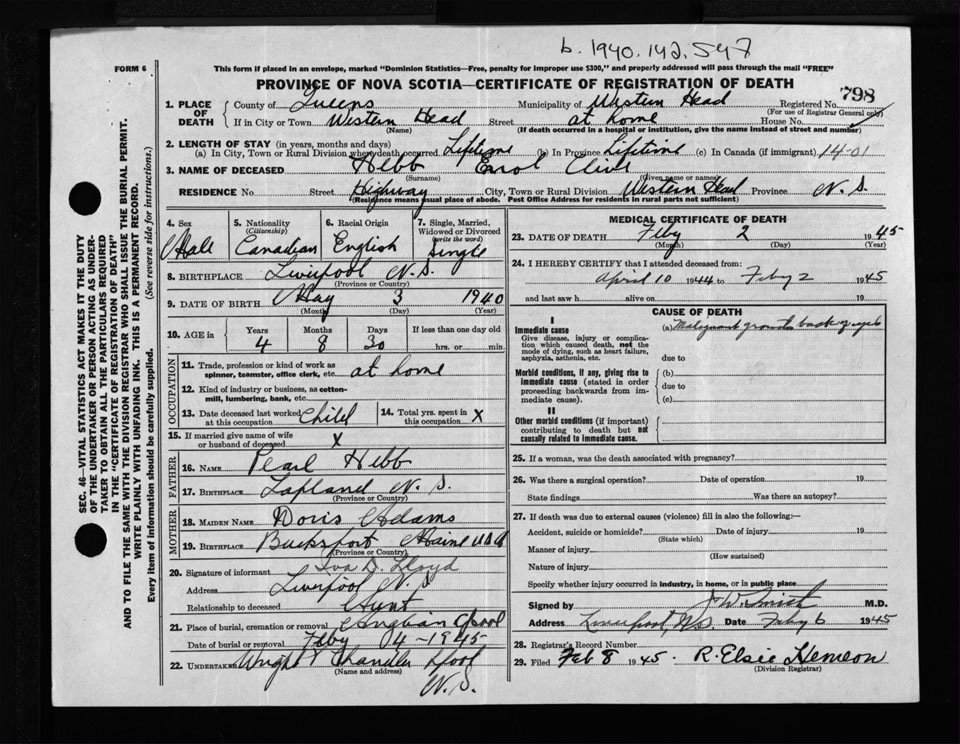 b. 1940.142.547
FORM 6
This form if placed in an envelope, marked "Dominion Statistics—Free, penalty for improper use $300," and properly addressed will pass through the mail "FREE"
PROVINCE OF NOVA SCOTIA—CERTIFICATE OF REGISTRATION OF DEATH
798
1. PLACE OF DEATH { County of Queens Municipality of Western Head Registered No.
(For use of Registrar General only)
If in City or Town Western Head Street at home House No.
(Name) (If death occurred in a hospital or institution, give the name instead of street and number)
2. LENGTH OF STAY (in years, months and days)
(a) In City, Town or Rural Division where death occurred Lifetime (b) In Province Lifetime (c) In Canada (if immigrant) 14-01
3. NAME OF DECEASED Hebb Errol Clive
(Surname) (Given name or names)
RESIDENCE No. Street Highway City, Town or Rural Division Western Head Province N.S.
(Residence means usual place of abode. Post Office Address for residents in rural parts not sufficient)
4. Sex 5. Nationality (Citizenship) 6. Racial Origin 7. Single, Married, Widowed or Divorced (write the word)
Male Canadian English Single
8. BIRTHPLACE Liverpool N.S.
(Province or Country)
9. DATE OF BIRTH May 3 1940
(Month) (Day) (Year)
10. AGE in Years Months Days If less than one day old
4 8 30 hrs. or min.
OCCUPATION
11. Trade, profession or kind of work as spinner, teamster, office clerk, etc. at home
12. Kind of industry or business, as cotton-mill, lumbering, bank, etc.
13. Date deceased last worked at this occupation Child 14. Total yrs. spent in this occupation X
15. If married give name of wife or husband of deceased X
FATHER
16. NAME Pearl Hebb
17. BIRTHPLACE Lapland N.S.
(Province or Country)
MOTHER
18. MAIDEN NAME Doris Adams
19. BIRTHPLACE Bucksport Maine USA
(Province or Country)
20. Signature of informant Iva D. Lloyd
Address Liverpool N.S.
Relationship to deceased Aunt
21. Place of burial, cremation or removal Anglican Lpool
Date of burial or removal Feby 4-1945
22. UNDERTAKER Wright & Chandler Lpool
(Name and address)
N.S.
MEDICAL CERTIFICATE OF DEATH
23. DATE OF DEATH Feby 2 1945
(Month) (Day) (Year)
24. I HEREBY CERTIFY that I attended deceased from:
April 10 1944 to Feby 2 1945
and last saw h alive on 19
CAUSE OF DEATH
I
Immediate cause (a) Malignant growth back of eyes
Give disease, injury or complication which caused death, not the mode of dying, such as heart failure, asphyxia, asthenia, etc. due to
Morbid conditions, if any, giving rise to immediate cause (stated in order proceeding backwards from immediate cause). (b)
due to
(c)
II
Other morbid conditions (if important) contributing to death but not causally related to immediate cause.
25. If a woman, was the death associated with pregnancy?
26. Was there a surgical operation? Date of operation 19
State findings Was there an autopsy?
27. If death was due to external causes (violence) fill in also the following:—
Accident, suicide or homicide? Date of injury 19
(State which)
Manner of injury
(How sustained)
Nature of injury
Specify whether injury occurred in industry, in home, or in public place
Signed by J W Smith M.D.
Address Liverpool, N.S. Date Feby 6 1945
28. Registrar's Record Number
29. Filed Feb 8 1945. R. Elsie Hemeon
(Division Registrar)
SEC. 46—VITAL STATISTICS ACT MAKES IT THE DUTY
OF THE UNDERTAKER OR PERSON ACTING AS UNDER-
TAKER TO OBTAIN ALL THE PARTICULARS REQUIRED
IN THE "CERTIFICATE OF REGISTRATION OF DEATH"
AND TO FILE THE SAME WITH THE DIVISION REGISTRAR WHO SHALL ISSUE THE BURIAL PERMIT.
WRITE PLAINLY WITH UNFADING INK. THIS IS A PERMANENT RECORD.
Every item of information should be carefully supplied. (See reverse side for instructions.)